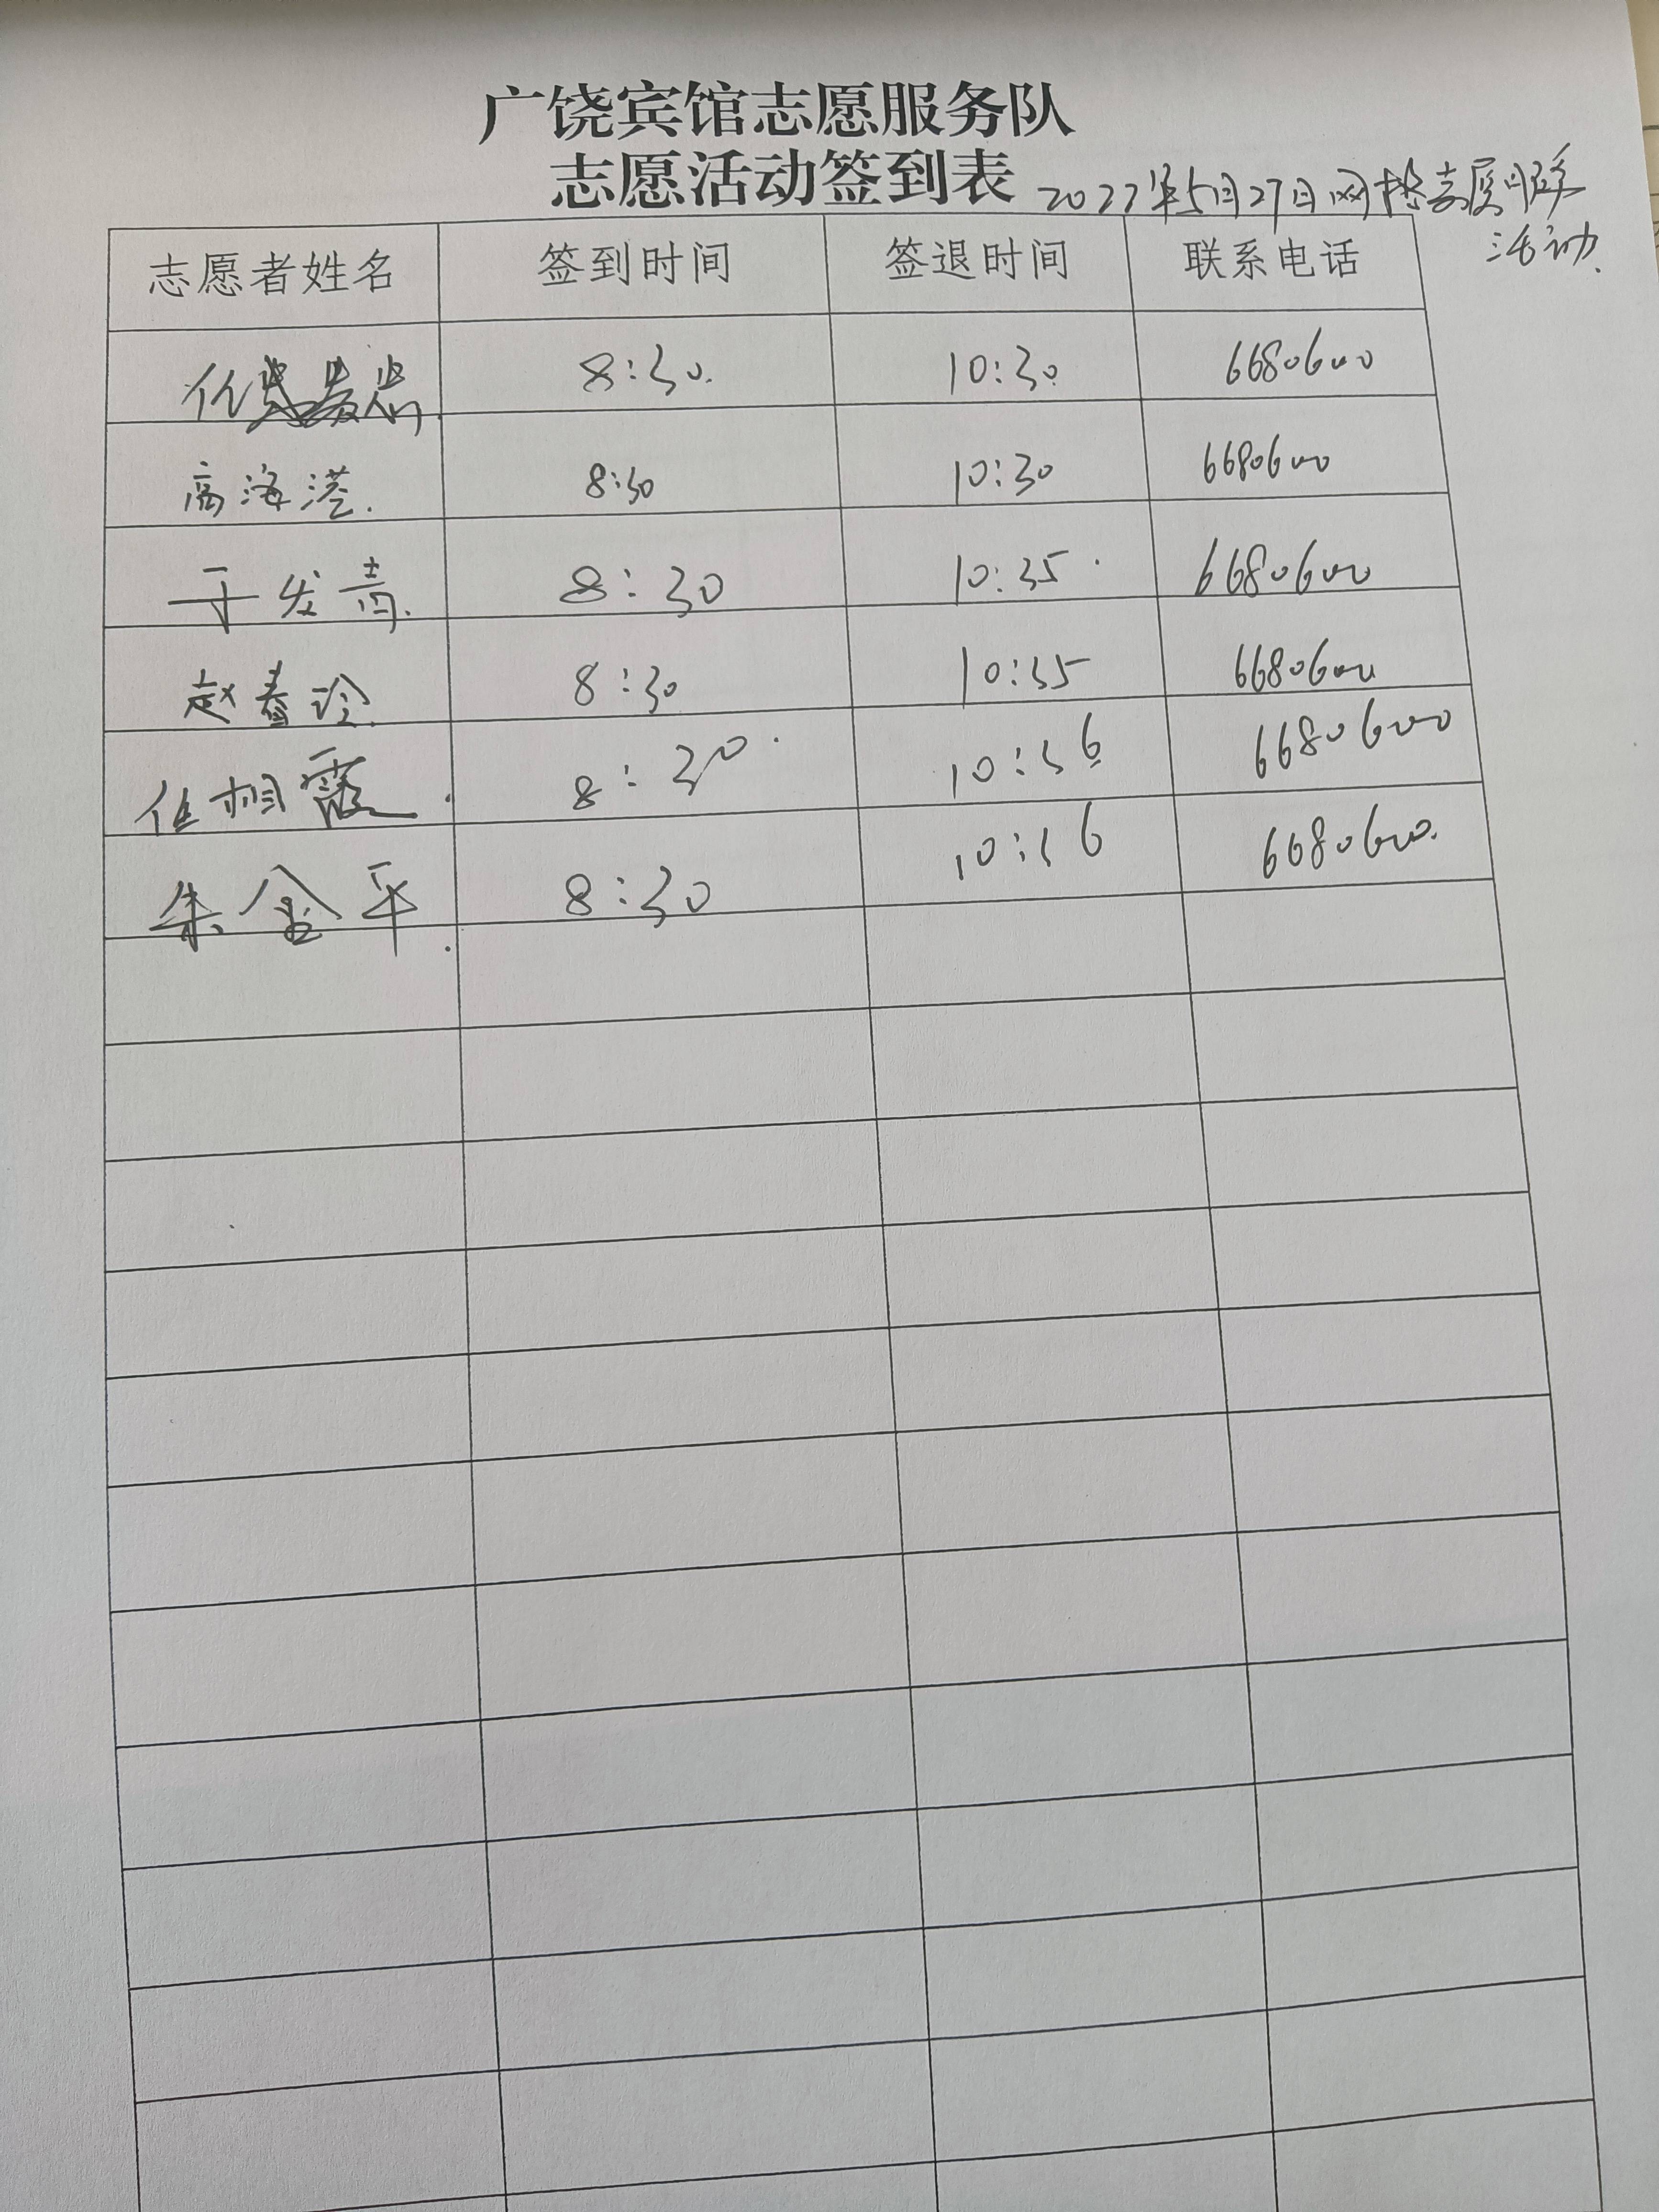 广饶宾馆志愿服务队
志愿活动签到表 2022年5月27日网格志愿服务
活动
志愿者姓名 签到时间 签退时间 联系电话
任 8:30 10:30 6680600
高海港 8:30 10:30 6680600
于发青 8:30 10:35 6680600
赵春玲 8:30 10:35 6680600
任相霞 8:30 10:36 6680600
朱金平 8:30 10:36 6680600